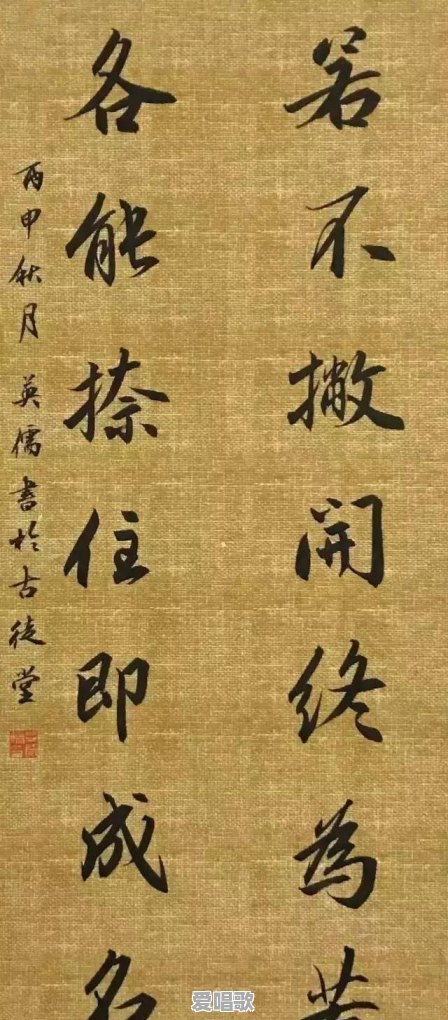 若不撇開終為苦
各能捺住即成名
丙申秋月 英儒書於古徒堂
爱唱歌